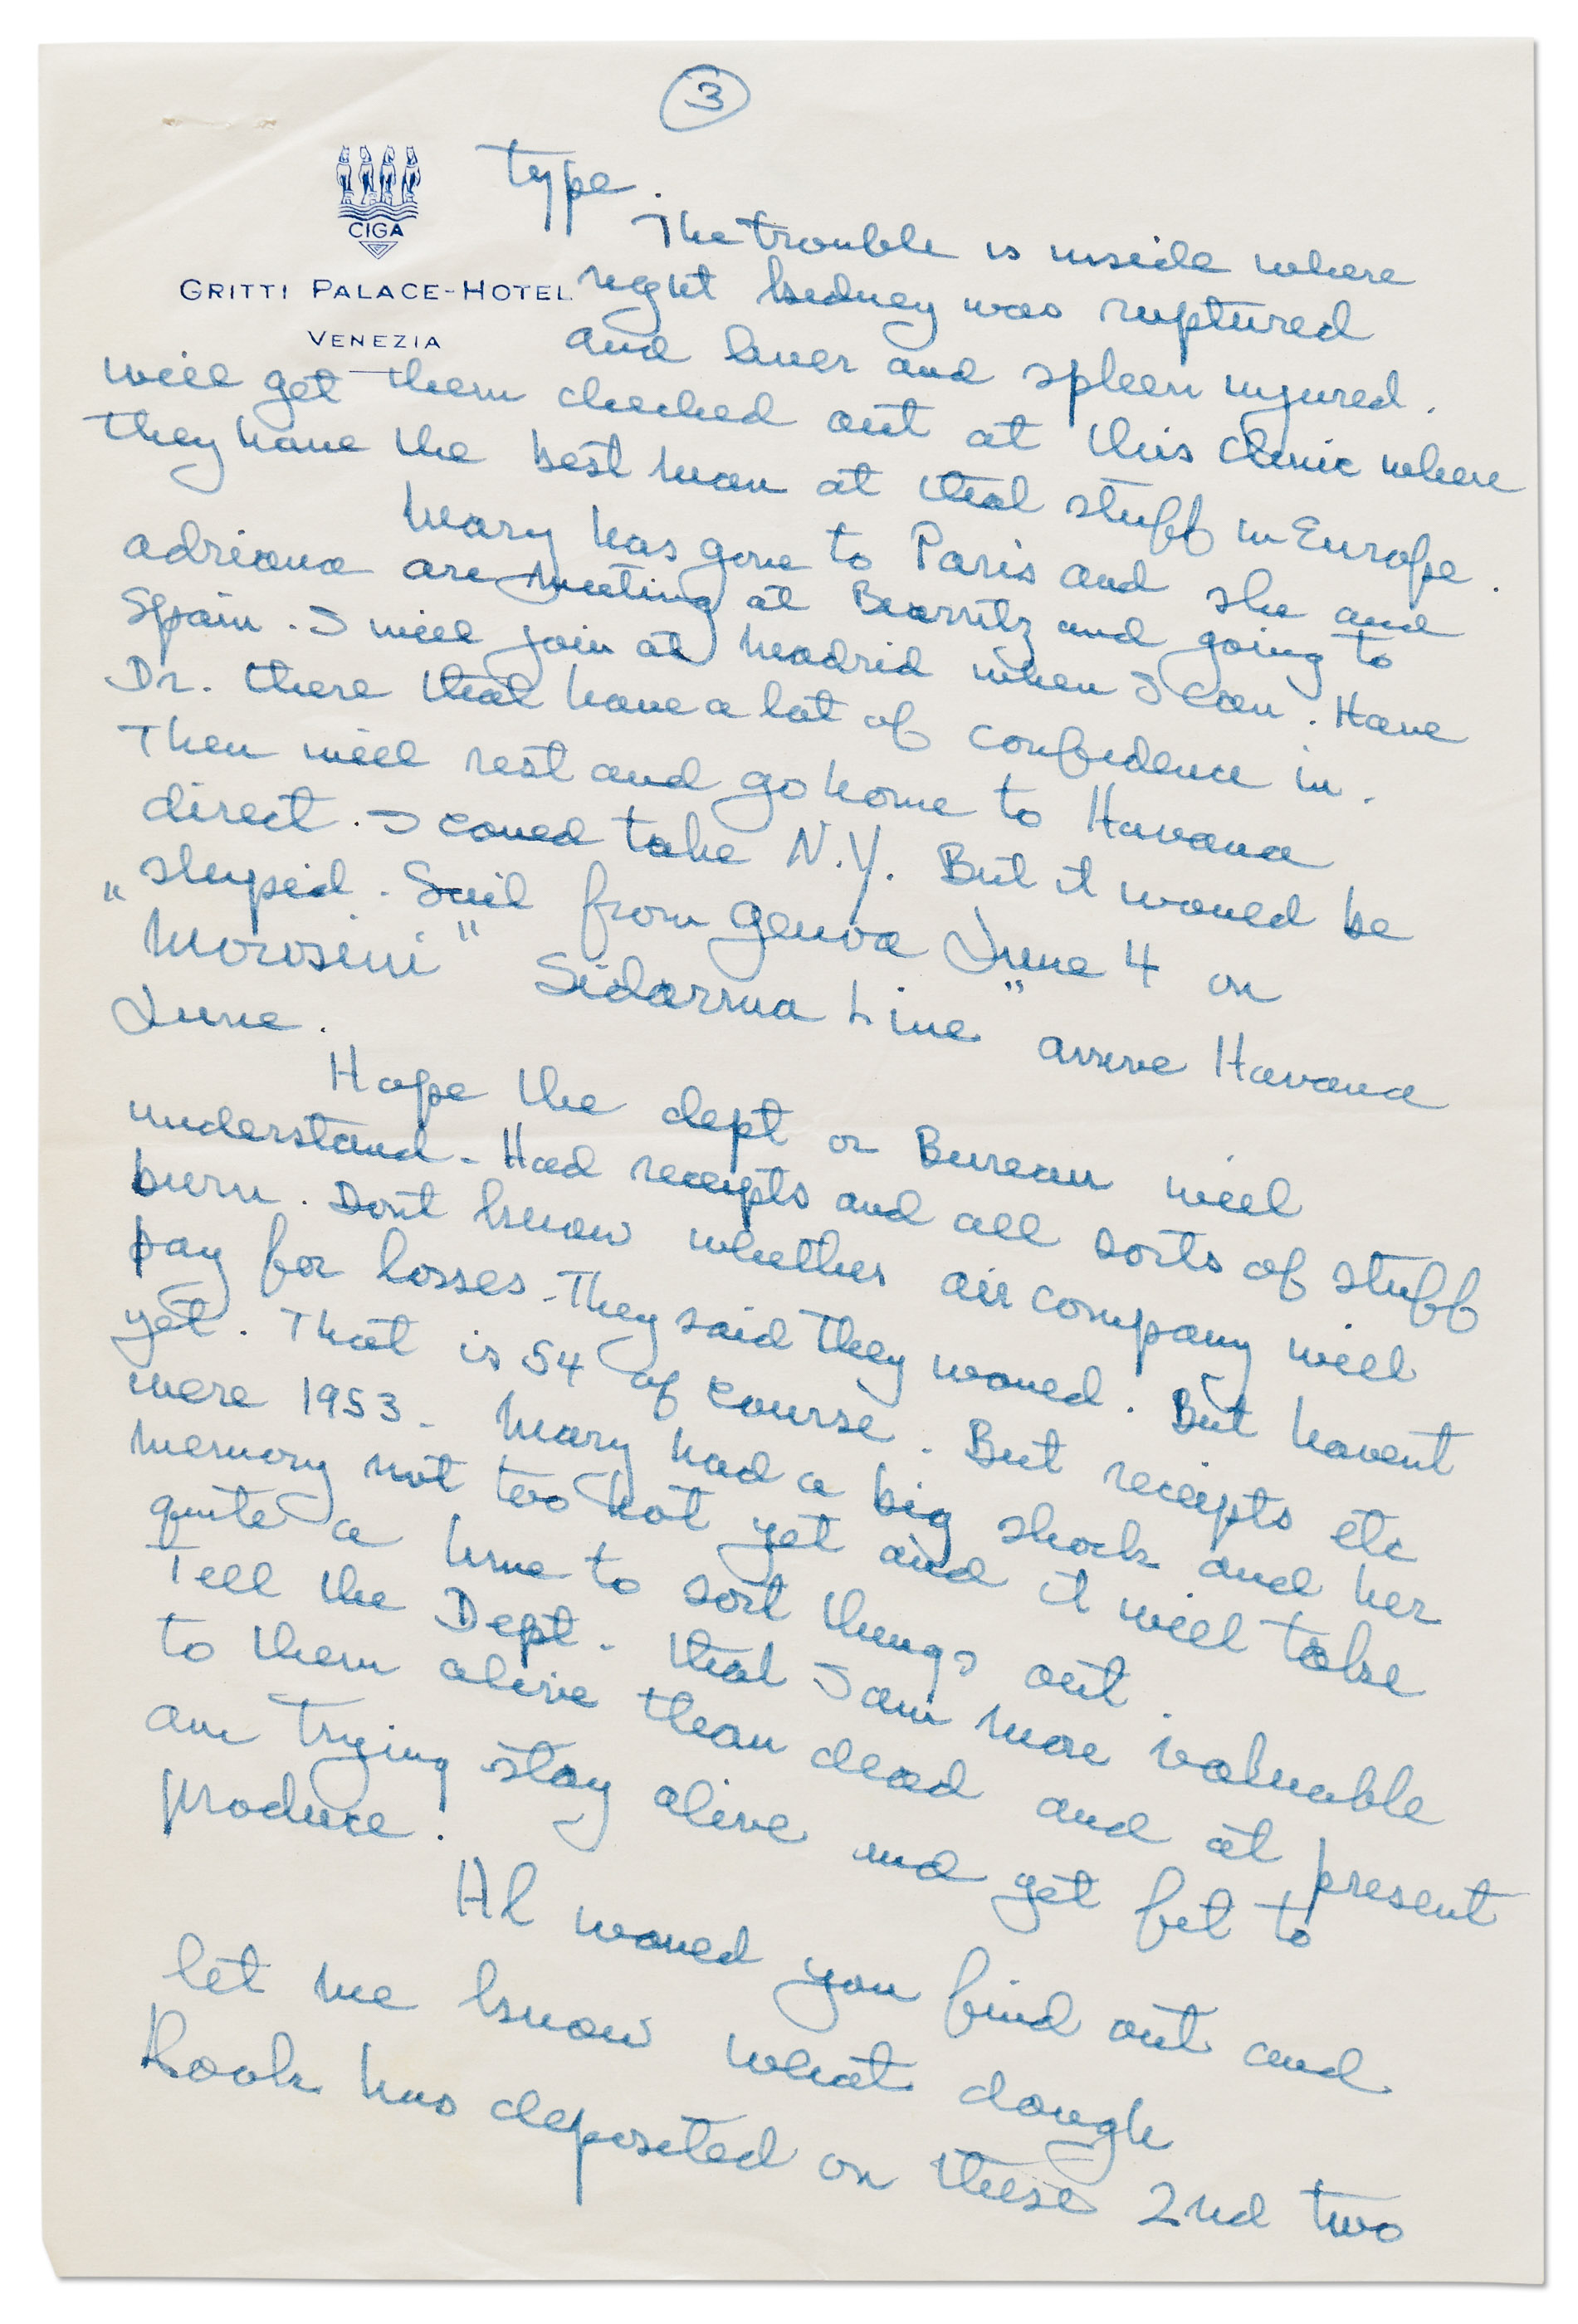 3
CIGA
GRITTI PALACE-HOTEL
VENEZIA
type.
The trouble is inside where
right kidney was ruptured
and liver and spleen injured.
will get them checked out at this clinic where
they have the best man at that stuff in Europe.
Mary has gone to Paris and she and
Adriana are meeting at Biarritz and going to
Spain. I will join at Madrid when I can. Have
Dr. there that have a lot of confidence in.
Then will rest and go home to Havana
direct. I could take N.Y. But it would be
stupid. Sail from Genova June 4 on
"Morosini" Sidarma Line" arrive Havana
June.
Hope the dept or Bureau will
understand - Had receipts and all sorts of stuff
burn. Dont know whether air company will
pay for losses. They said they would. But havent
yet. That is 54 of course. But receipts etc
were 1953. Mary had a big shock and her
memory not too hot yet and it will take
quite a time to sort things out.
Tell the Dept. that I am more valuable
to them alive than dead and at present
am trying stay alive and get fit to
produce.
Al would you find out and
let me know what dough
Look has deposited on these 2nd two